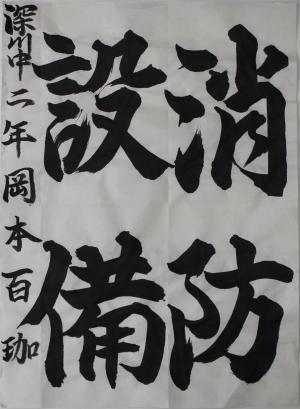 消防
設備
深川中二年岡本百珈